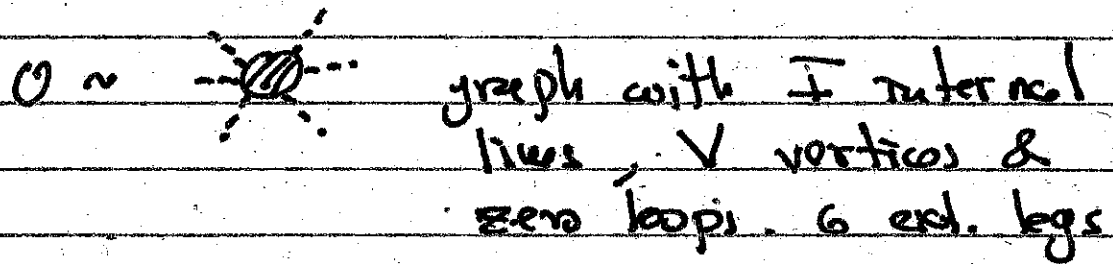 O ~ graph with I internal
lines, V vertices &
zero loops. 6 ext. legs